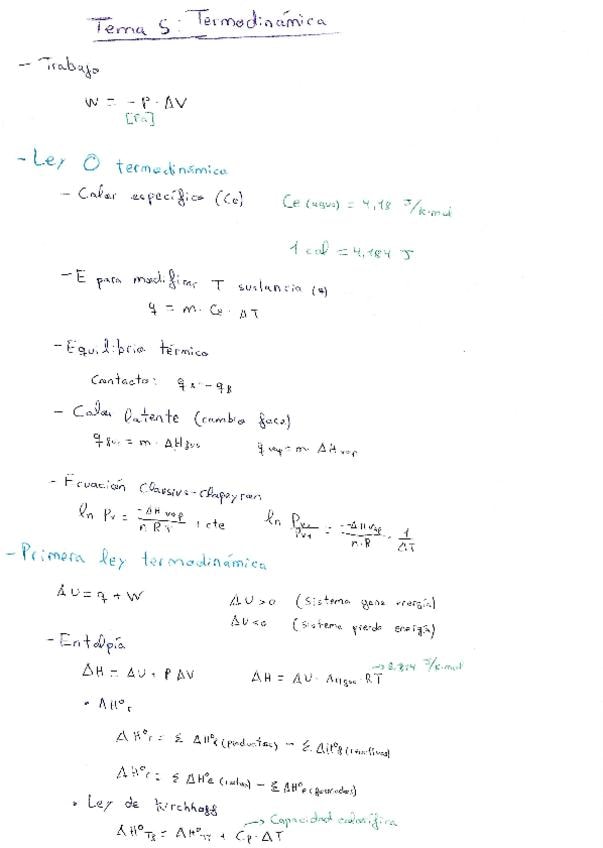 Tema 5: Termodinámica
- Trabajo
W = - P · ΔV
[Pa]
- Ley 0 termodinámica
- Calor específico (Ce) Ce (agua) = 4,18 J/k·mol
1 cal = 4,184 J
- E para modificar T sustancia
q = m · Ce · ΔT
- Equilibrio térmico
Contacto: qA = -qB
- Calor latente (cambio fase)
q fus = m · ΔH fus q vap = m · ΔH vap
- Ecuación Clausius-Clapeyron
ln Pv = -ΔH vap / n R T + cte ln Pv2/Pv1 = -ΔH vap / n·R · 1/ΔT
- Primera ley termodinámica
ΔU = q + W ΔU > 0 (Sistema gana energía)
ΔU < 0 (sistema pierde energía)
- Entalpía
ΔH = ΔU + P ΔV ΔH = ΔU + Δn gas · RT
• ΔH°r
ΔH°r = Σ ΔH°f (productos) - Σ ΔH°f (reactivos)
ΔH°r = Σ ΔH°e (rotos) - Σ ΔH°e (formados)
• Ley de Kirchhoff → Capacidad calorífica
ΔH°T2 = ΔH°T1 + Cp · ΔT